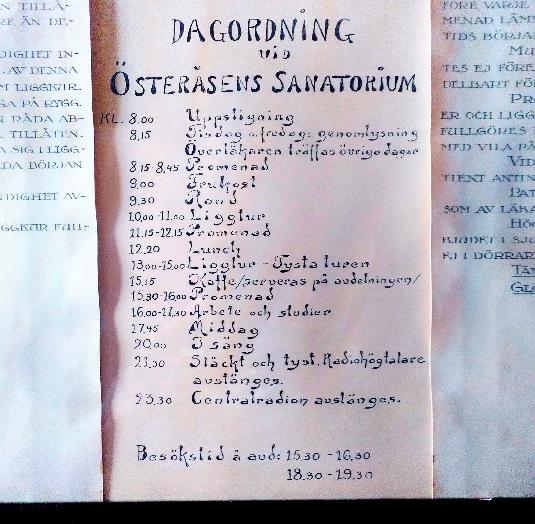 EN TILLÅ-
RE ÄN DE-
DIGHET IN-
AV DENNA
M LIGGKUR.
GA PÅ RYGG.
N RÅDA AB-
TILLÅTEN.
A SIG I LIGG-
DA BÖRJAN
NDIGHET AV-
GGKUR FULL-
DAGORDNING
VID
ÖSTERÅSENS SANATORIUM
KL. 8.00 Uppstigning
8.15 Tisdag o.fredag: genomlysning
Överläkaren träffas övriga dagar
8.15-8.45 Promenad
9.00 Frukost
9.30 Rond
10.00-11.00 Liggtur
11.15-12.15 Promenad
12.20 Lunch
13.00-15.00 Liggtur - Tysta turen
15.15 Kaffe/serveras på avdelningen/
15.30-16.00 Promenad
16.00-17.30 Arbete och studier
17.45 Middag
20.00 I säng
21.30 Släckt och tyst. Radiohögtalare
avstänges.
23.30 Centralradion avstänges.
Besökstid å avd: 15.30 - 16.30
18.30 - 19.30
FÖRE VARJE
MENAD LÄMN
TIDS BÖRJAN
TES EJ FÖRE
DELBART FÖR
ER OCH LIGG
FULLGÖRES
MED VILA PÅ
VID
TIENT ANTIN
PAT
SOM AV LÄKA
BJUDET I SJU
EJ I DÖRRAR